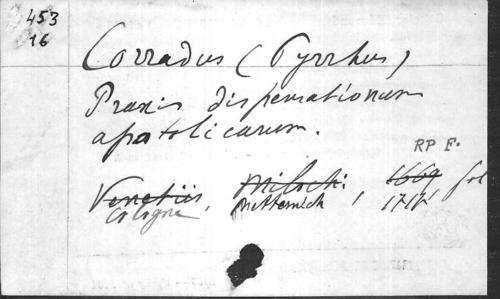 453
16
Corradus (Pyrrhus)
Praxis dispensationum
apostolicarum.
RP F.
Venetiis, Milochi, 1669 fol
Cologne Metternich, 1717